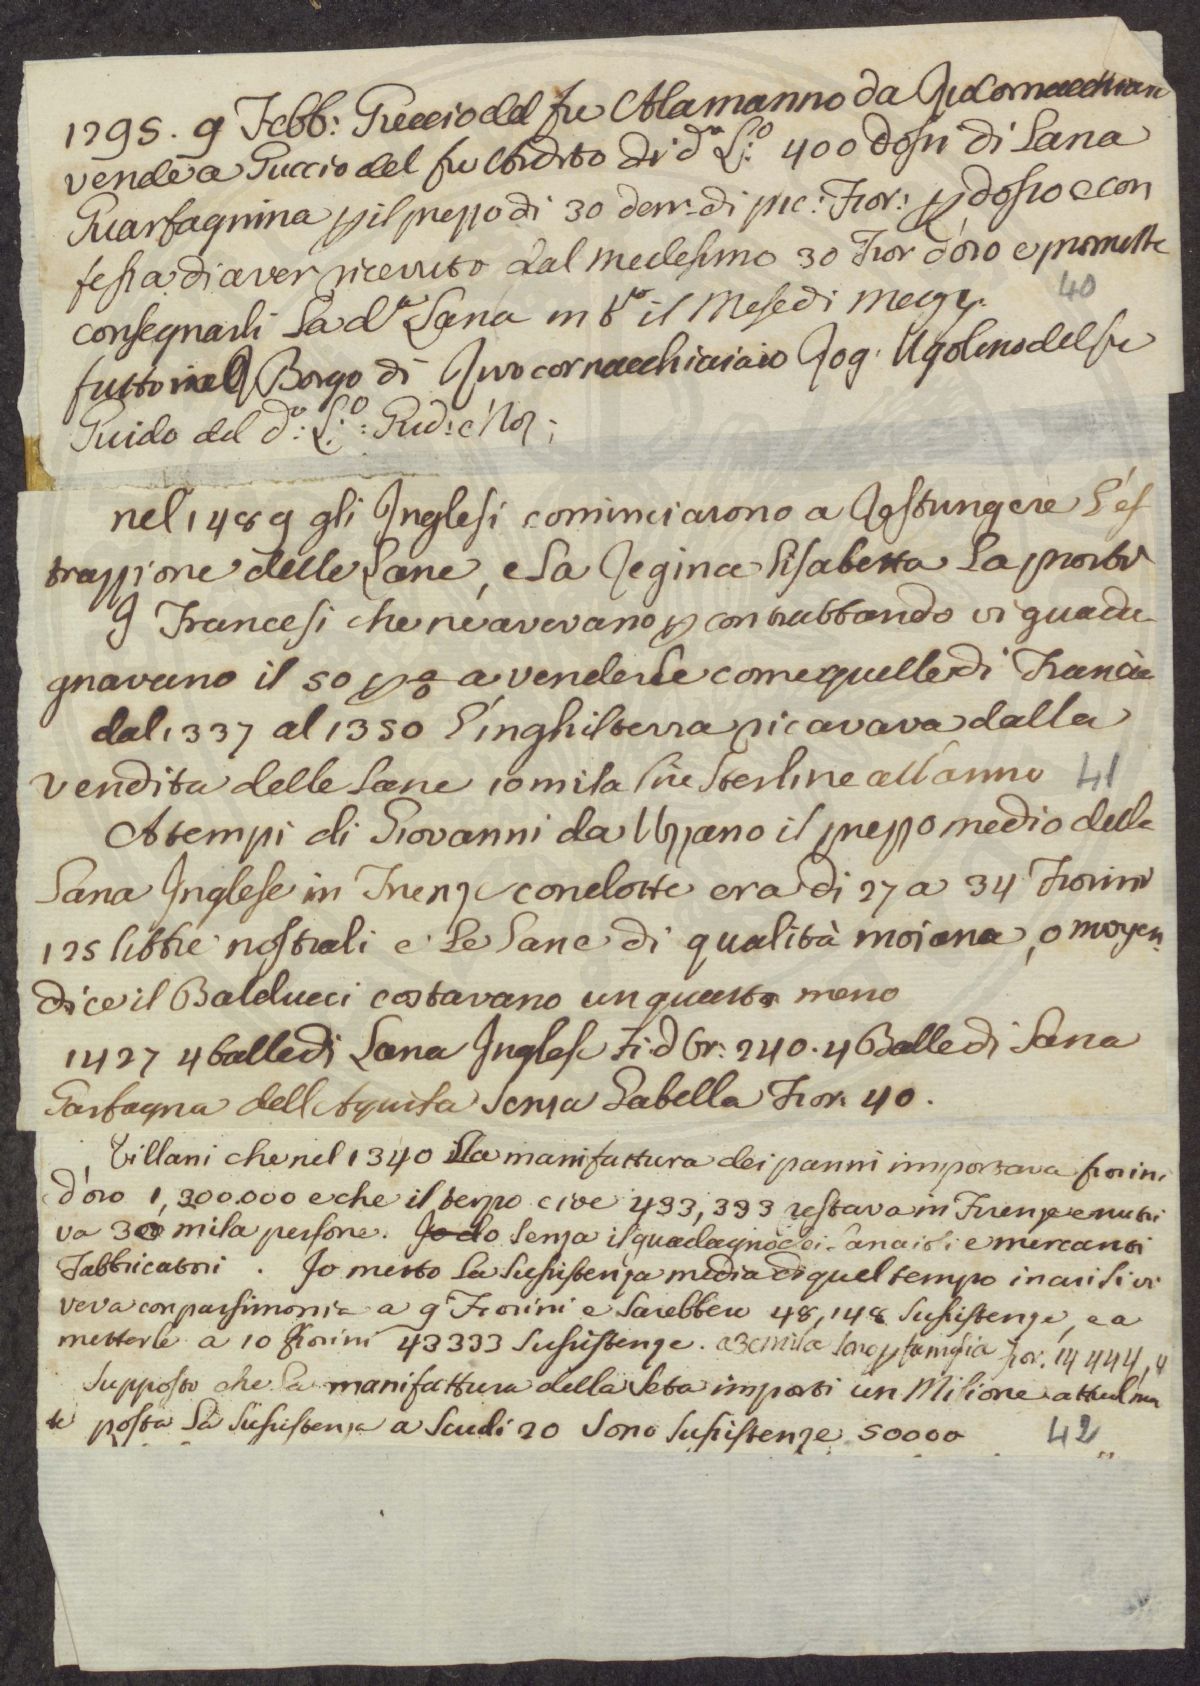 1295. 9 Febb: Guccio del fu Alamanno da
vende a Puccio del fu dito di d.a L:o 400 dossi di Lana
Guarfagnina p il prezzo di 30 denr. di pic: Fior: p dosso e con
fessa di aver ricevuto dal medesimo 30 Fior d'oro e promette
consegnarli la d.a Lana in t.o il Mese di Magg.
40
fatto nel Borgo di Rivocornacchiaiaio Rog. Ugolino del fu
Guido del d.o: L:o: Giud: e Not;
nel 1489 gli Inglesi cominciarono a Restungere l'es
trazzione delle Lane, e la Regina Lisabetta la proibì
I Francesi che ne avevano p contrabbando vi guada-
gnavano il 50 p % a venderle come quelle di Francia
dal 1337 al 1350 l'inghilterra ricavava dalla
vendita delle Lane 10 mila lire Sterline all'anno
41
A tempi di Giovanni da Uzzano il prezzo medio della
Lana Inglese in Firenze condotte era di 27 a 34 Fiorini
125 libbre nostrali e le Lane di qualità moiana, o moyen
dice il Balducci costavano un quarto meno
1427 4 balle di Lana Inglese Fi. d Gr: 240. 4 Balle di Lana
Garfagna dell Aquila senza Gabella Fior. 40.
Villani che nel 1340 la manifattura dei panni importava fiorini
d'oro 1,200.000 e che il terzo cioe 433,333 restava in Firenze e nutri
va 30 mila persone. Io do senza il guadagno dei Lanaioli e mercanti
Fabbricatori. Io metto la sussistenza media di quel tempo in cui si vi
veva con parsimonia a 9 Fiorini e sarebbero 48,148 sussistenze, e a
metterle a 10 fiorini 43333 sussistenze. a 3 mila sono p famiglia Fior. 14444,4
Supposto che la manifattura della Seta importi un Milione attualmen
te posta la sussistenza a Scudi 20 sono sussistenze 50000
42